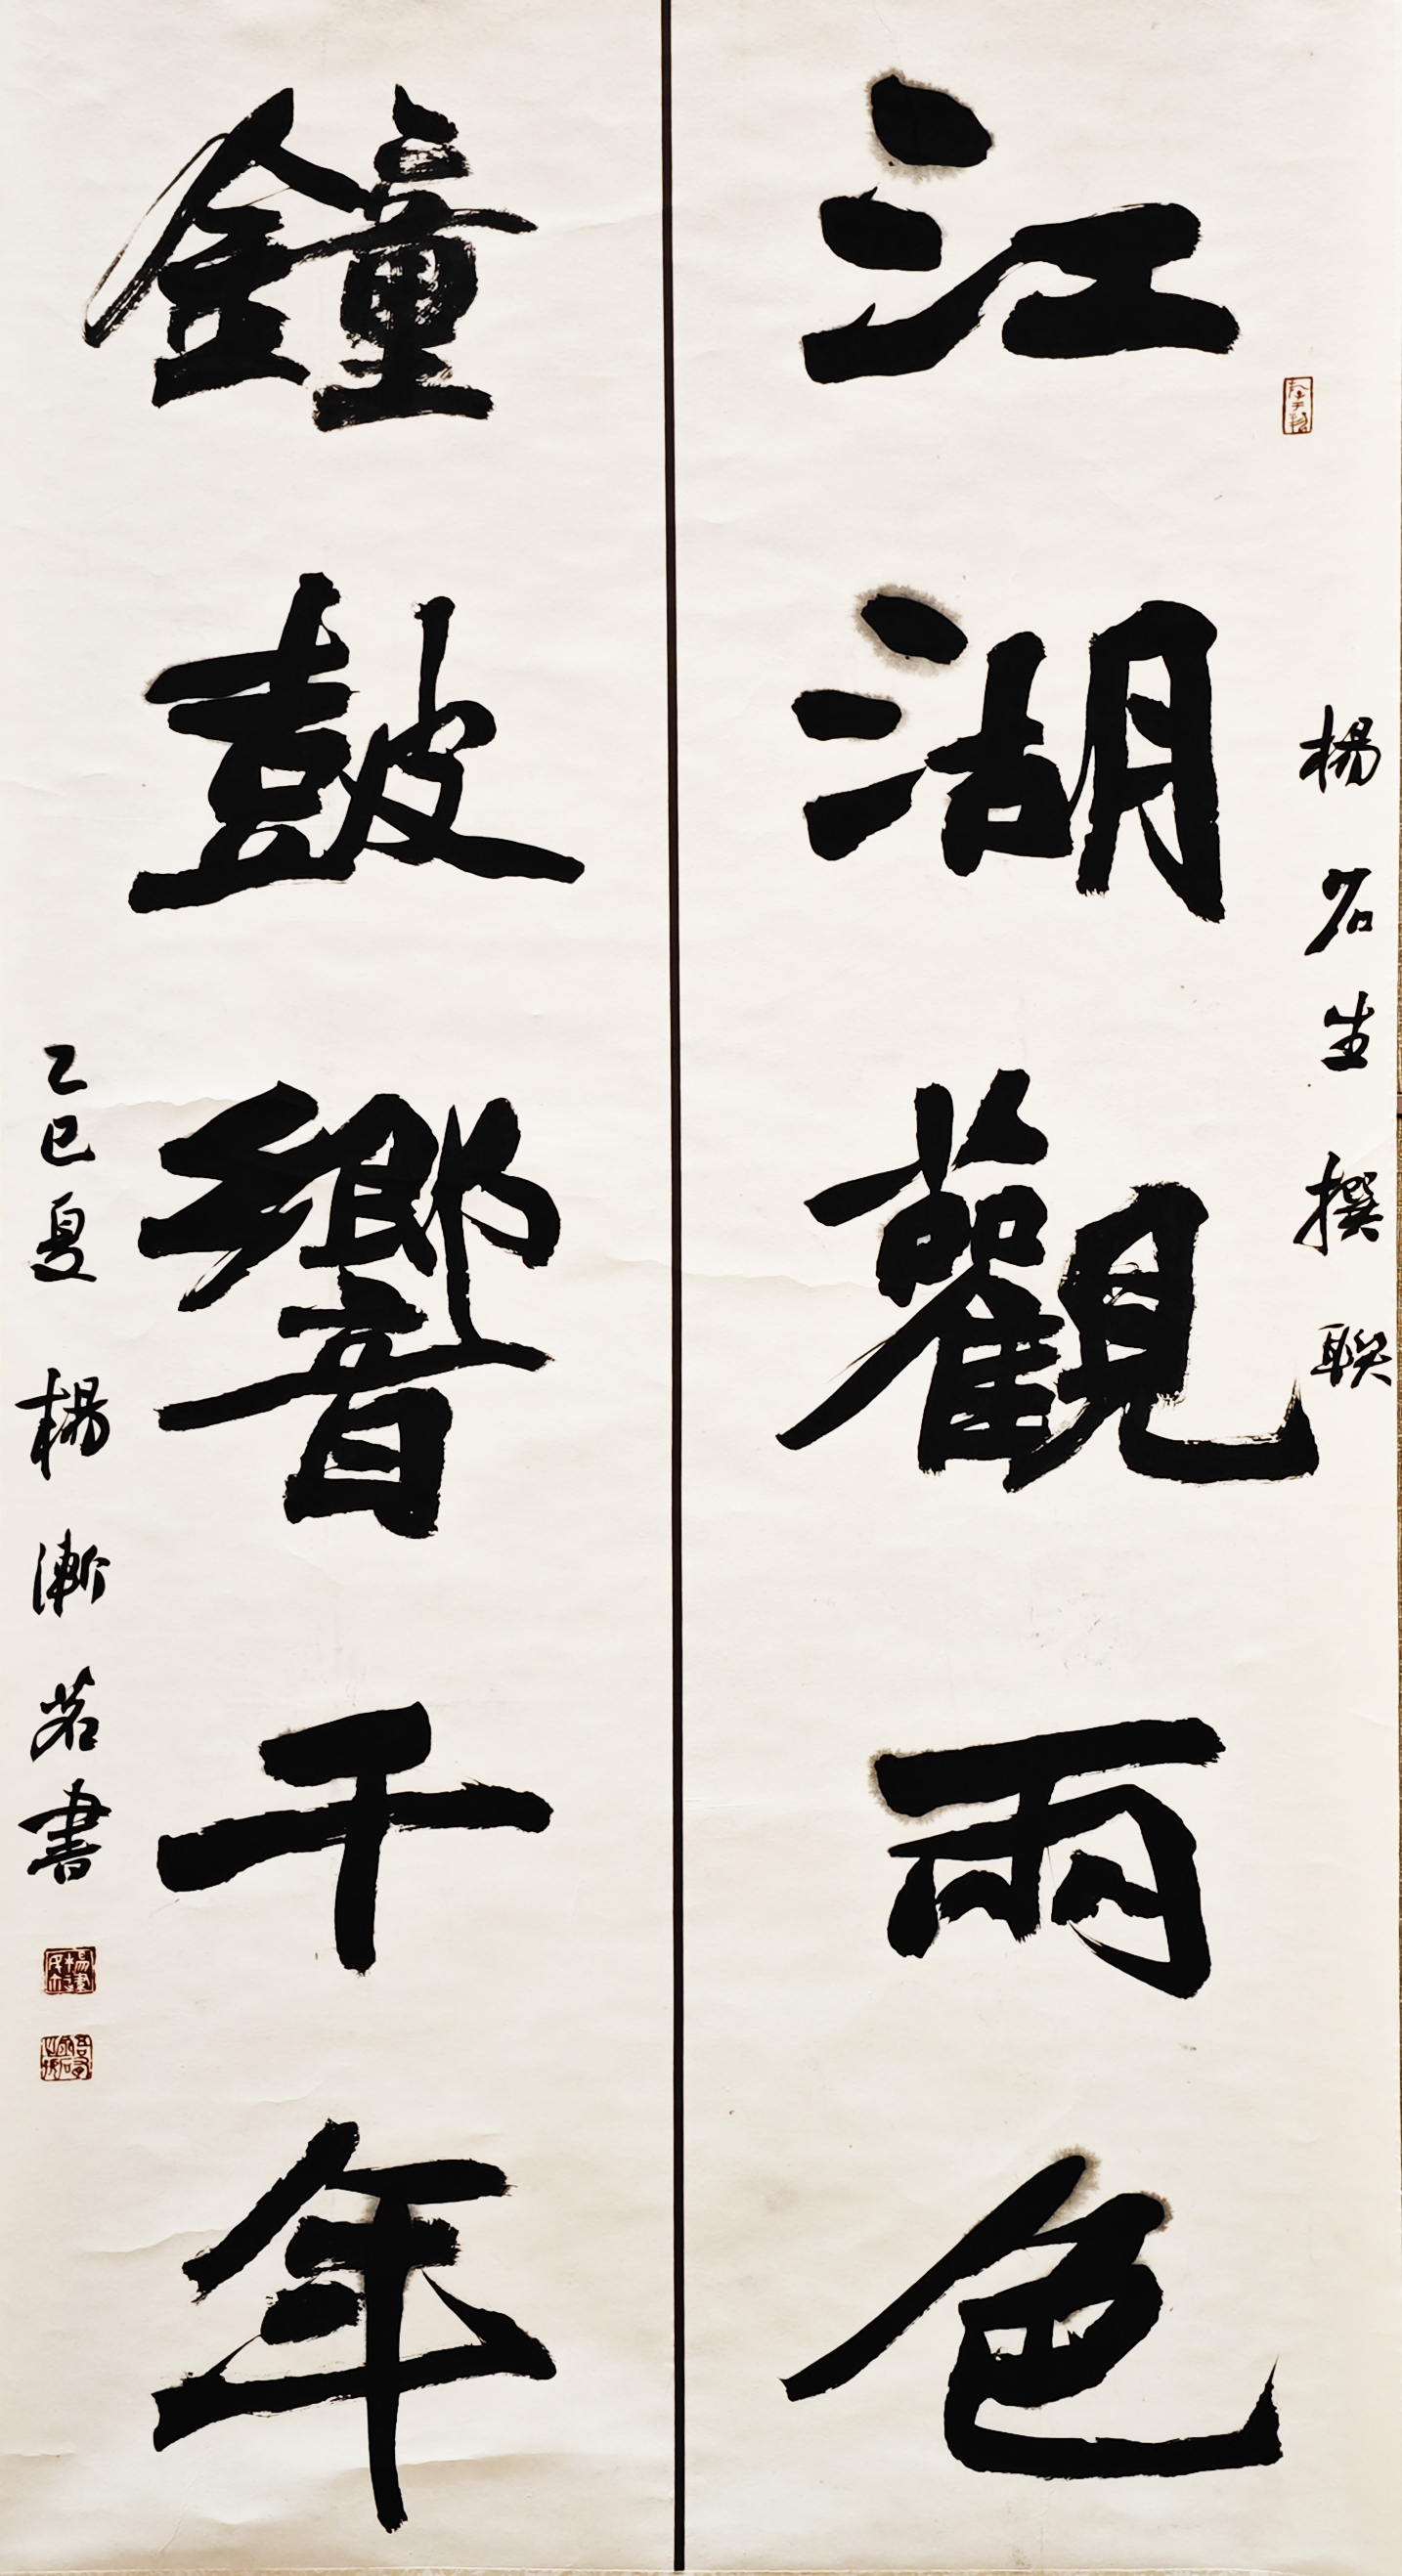 江湖觀兩色
楊名生撰联
鐘鼓響千年
乙巳夏 楊漸茗書